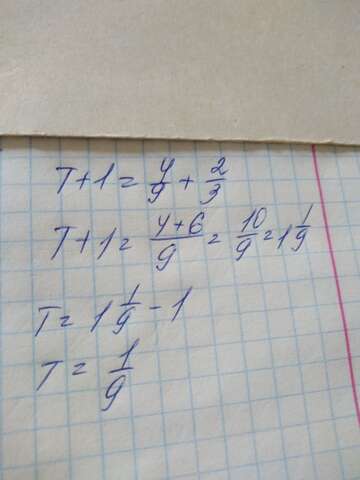 T+1=4/9+2/3
T+1=(4+6)/9=10/9=1 1/9
T=1 1/9-1
T=1/9